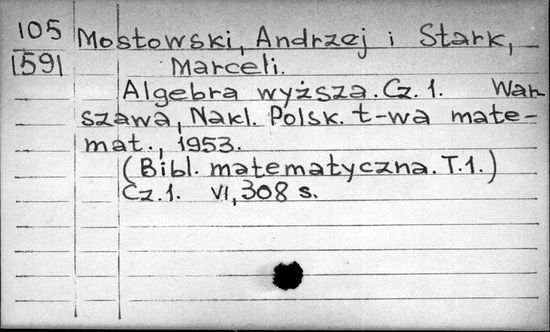 105 Mostowski, Andrzej i Stark,
1591 Marceli.
Algebra wyższa. Cz. 1. War-
szawa, Nakl. Polsk. t-wa mate-
mat., 1953.
(Bibl. matematyczna. T. 1.)
Cz. 1. VI, 308 s.